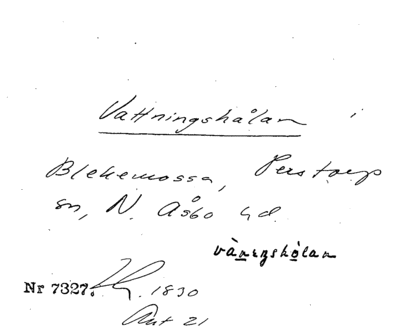 Vattningshålan i
Blekemossa, Perstorp
sn, N. Åsbo hd.
vànıŋshålan
Nr 7327. 1830
Ant 21